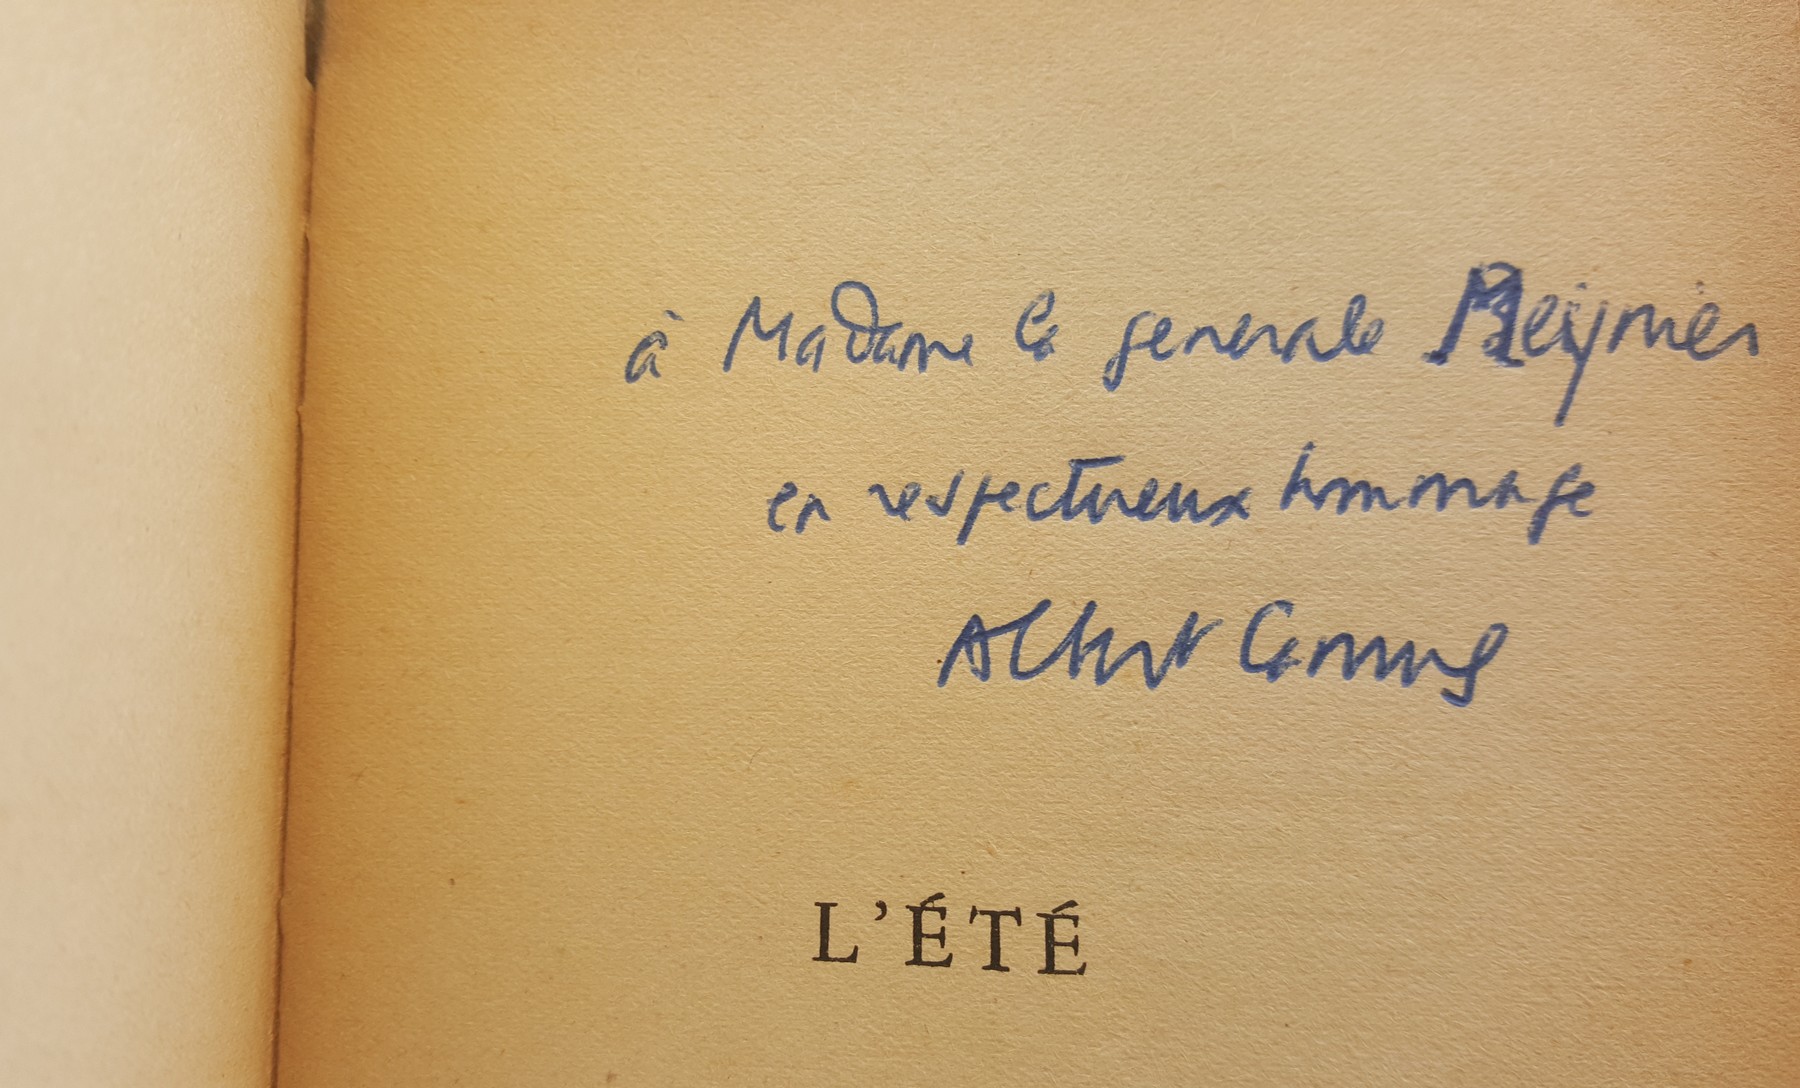 à Madame la generale Meynier
en respectueux hommage
Albert Camus
L'ÉTÉ